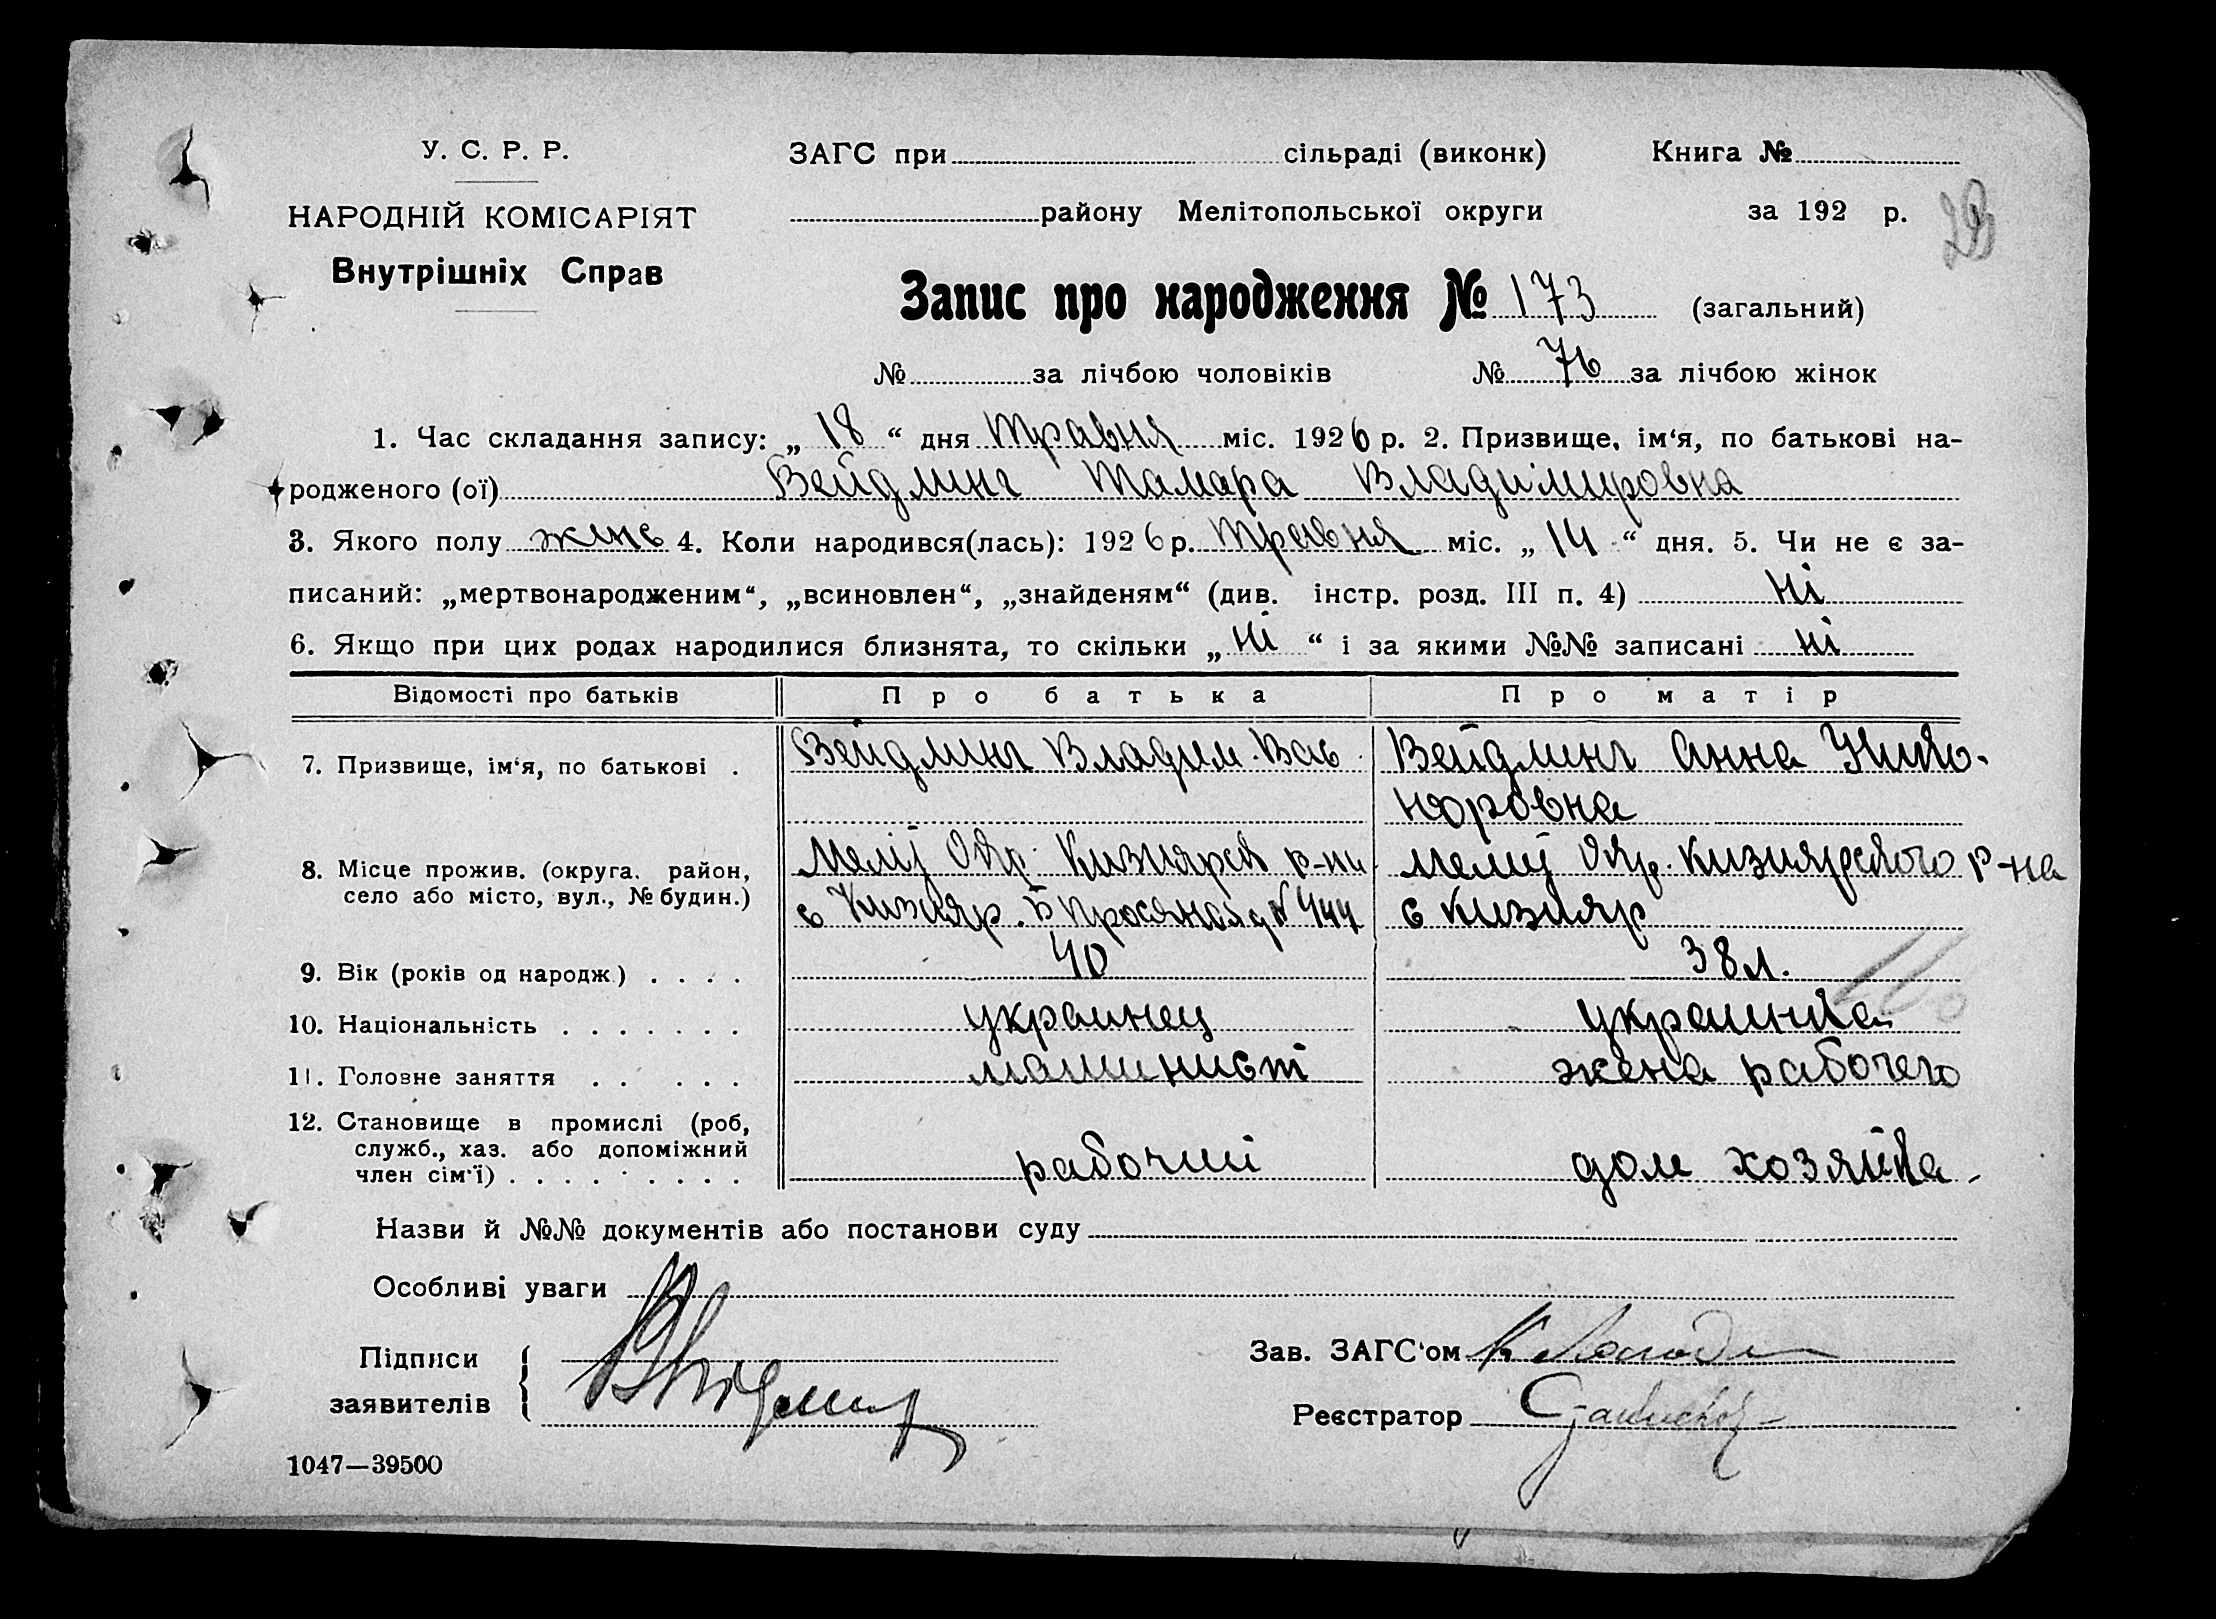 У. С. Р. Р.
НАРОДНІЙ КОМІСАРІЯТ
Внутрішніх Справ
ЗАГС при сільраді (виконк)
району Мелітопольської округи
Книга №
за 192 р.
Запис про народження № 173 (загальний)
№ за лічбою чоловіків № 76 за лічбою жінок
1. Час складання запису: „ 18 “ дня травня міс. 1926 р. 2. Призвище, ім‘я, по батькові на-
родженого (ої) Вейдлинг Тамара Владимировна
3. Якого полу жін 4. Коли народився(лась): 1926 р. травня міс. „ 14 “ дня. 5. Чи не є за-
писаний: „мертвонародженим“, „всиновлен“, „знайденям“ (див. інстр. розд. III п. 4) ні
6. Якщо при цих родах народилися близнята, то скільки „ ні “ і за якими №№ записані ні
Відомості про батьків Про батька Про матір
7. Призвище, ім‘я, по батькові . Вейдлинг Владим. Вас Вейдлинг Анна Нико-
норовна
8. Місце прожив. (округа, район, Меліт Окр. Кизиярск р-на Меліт Окр. Кизиярского р-на
село або місто, вул., № будин.) с Кизияр. Б Просяная д N 444 с Кизияр
9. Вік (років од народж.) . . . . 40 38 л.
10. Національність . . . . . . . украинец украинка
11. Головне заняття . . . . . . машинист жена рабочего
12. Становище в промислі (роб,
служб., хаз. або допоміжний
член сім‘ї) . . . . . . . . . рабочий дом хозяйка
Назви й №№ документів або постанови суду
Особливі уваги
Підписи
заявителів
Зав. ЗАГС‘ом
Реєстратор
1047—39500